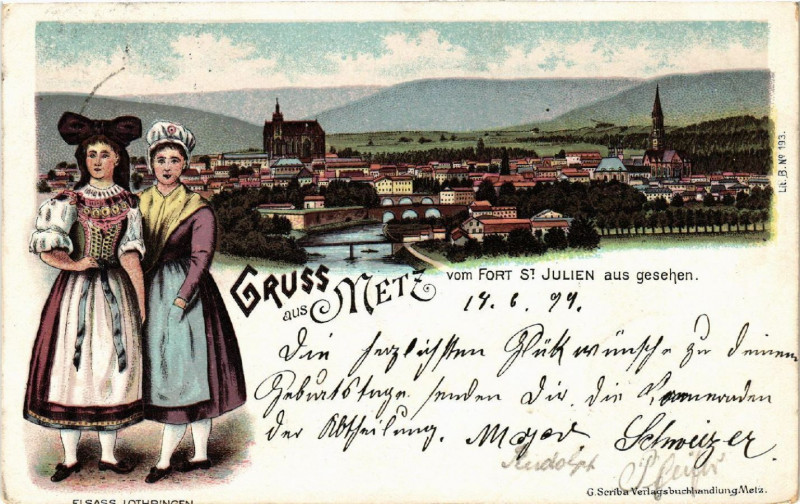 Gruss
aus Metz
vom FORT ST JULIEN aus gesehen.
14. 6. 99.
Die herzlichsten Glükwünsche zu deinem
Geburtstage senden Dir die Kameraden
der Abtheilung. Schweizer
Rudolph
G. Scriba Verlagsbuchhandlung Metz.
ELSASS LOTHRINGEN
Lit. B. No 193.